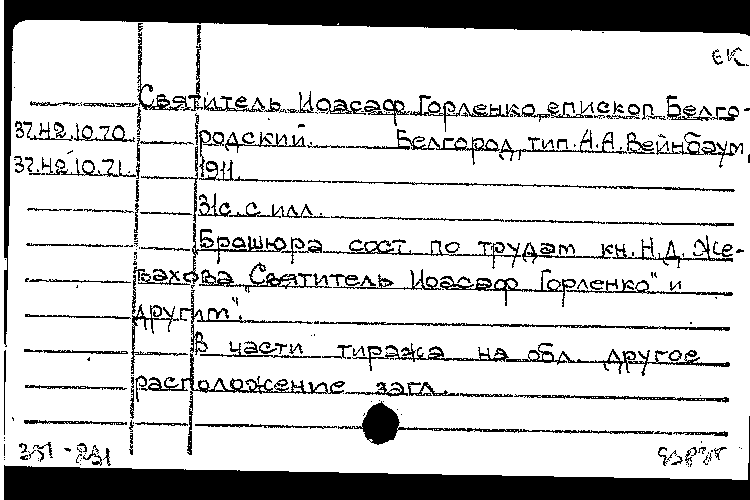 ЕК
Святитель Иоасаф Горленко, епископ Белго-
37.42.10.70 родский. Белгород, тип. А.А. Вейнбаум,
37.42.10.71 1911.
31с. с илл.
Брошюра сост. по трудам кн. Н.Д. Же-
вахова „Святитель Иоасаф Горленко" и
другим".
В части тиража на обл. другое
расположение загл.
351-231